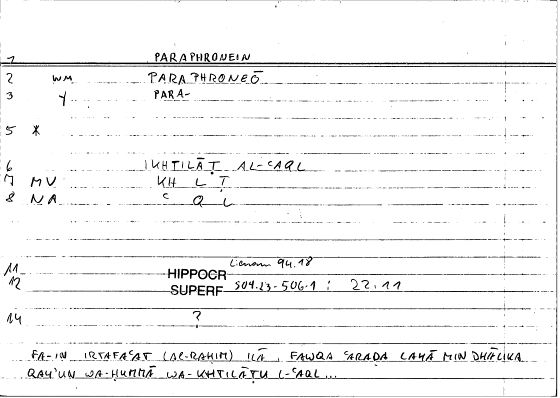 1 PARAPHRONEIN
2 WM PARAPHRONEŌ
3 Y PARA-
5 *
6 IKHTILĀṬ AL-ʿAQL
7 MV KH L Ṭ
8 NA ʿ Q L
11 HIPPOCR 94.18
12 SUPERF 504.23-506.1 : 22.11
14 ?
FA-IN IRTAFAʿAT (AL-RAḤIM) ILĀ FAWQA ʿARAḌA LAHĀ MIN DHĀLIKA
QAYʾUN WA-ḤUMMĀ WA-KHTILĀṬU L-ʿAQL...